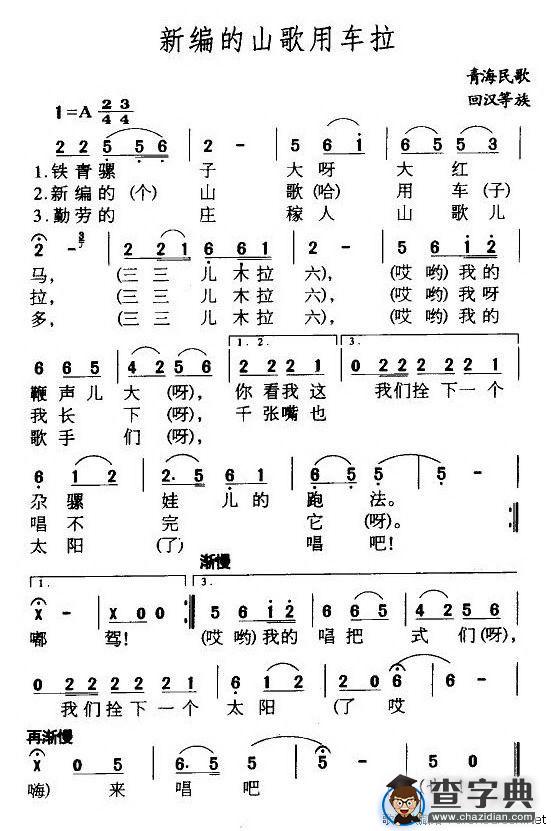 新编的山歌用车拉
青海民歌
回汉等族
1=A 2/4 3/4
2 2 5 5 6 2 - 5 6 i 5 6 5
1.铁青骡 子 大呀 大红
2.新编的(个)山 歌(哈) 用车(子)
3.勤劳的 庄 稼人 山歌儿
2 - 2 2 2 1 6 6 6 1 2 - 5 6 i 2
马, (三三 儿木拉六), (哎哟)我的
拉, (三三 儿木拉六), (哎哟)我呀
多, (三三 儿木拉六), (哎哟)我的
1. 2. 3.
6 6 5 4 2 5 6 2 2 2 1 0 2 2 2 2 2 1
鞭声儿大(呀), 你看我这 我们拴下一个
我长 下(呀), 千张嘴也
歌手 们(呀),
6 1 2 2. 5 6 6 5 5 5 -
尕骡 娃 儿的 跑法。
唱不 完 它(呀)。
太阳 (了) 唱吧!
渐慢
1. 3.
x - x 0 0 5 6 i 2 6 6 5 4 2 5 6
嘟 驾! (哎哟)我的 唱把 式们(呀),
0 2 2 2 2 2 1 6 1 2 2 0 6
我们拴下一个 太阳 (了 哎
再渐慢
x 0 5 5 - 5 - 5 0
嗨) 来 唱吧
查字典
www.chazidian.com